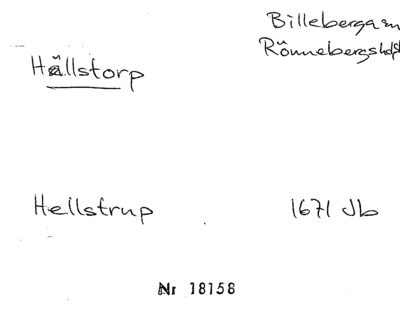 Billeberga sn
Rönnebergs hd
Hällstorp
Hellstrup 1671 Jb
Nr 18158